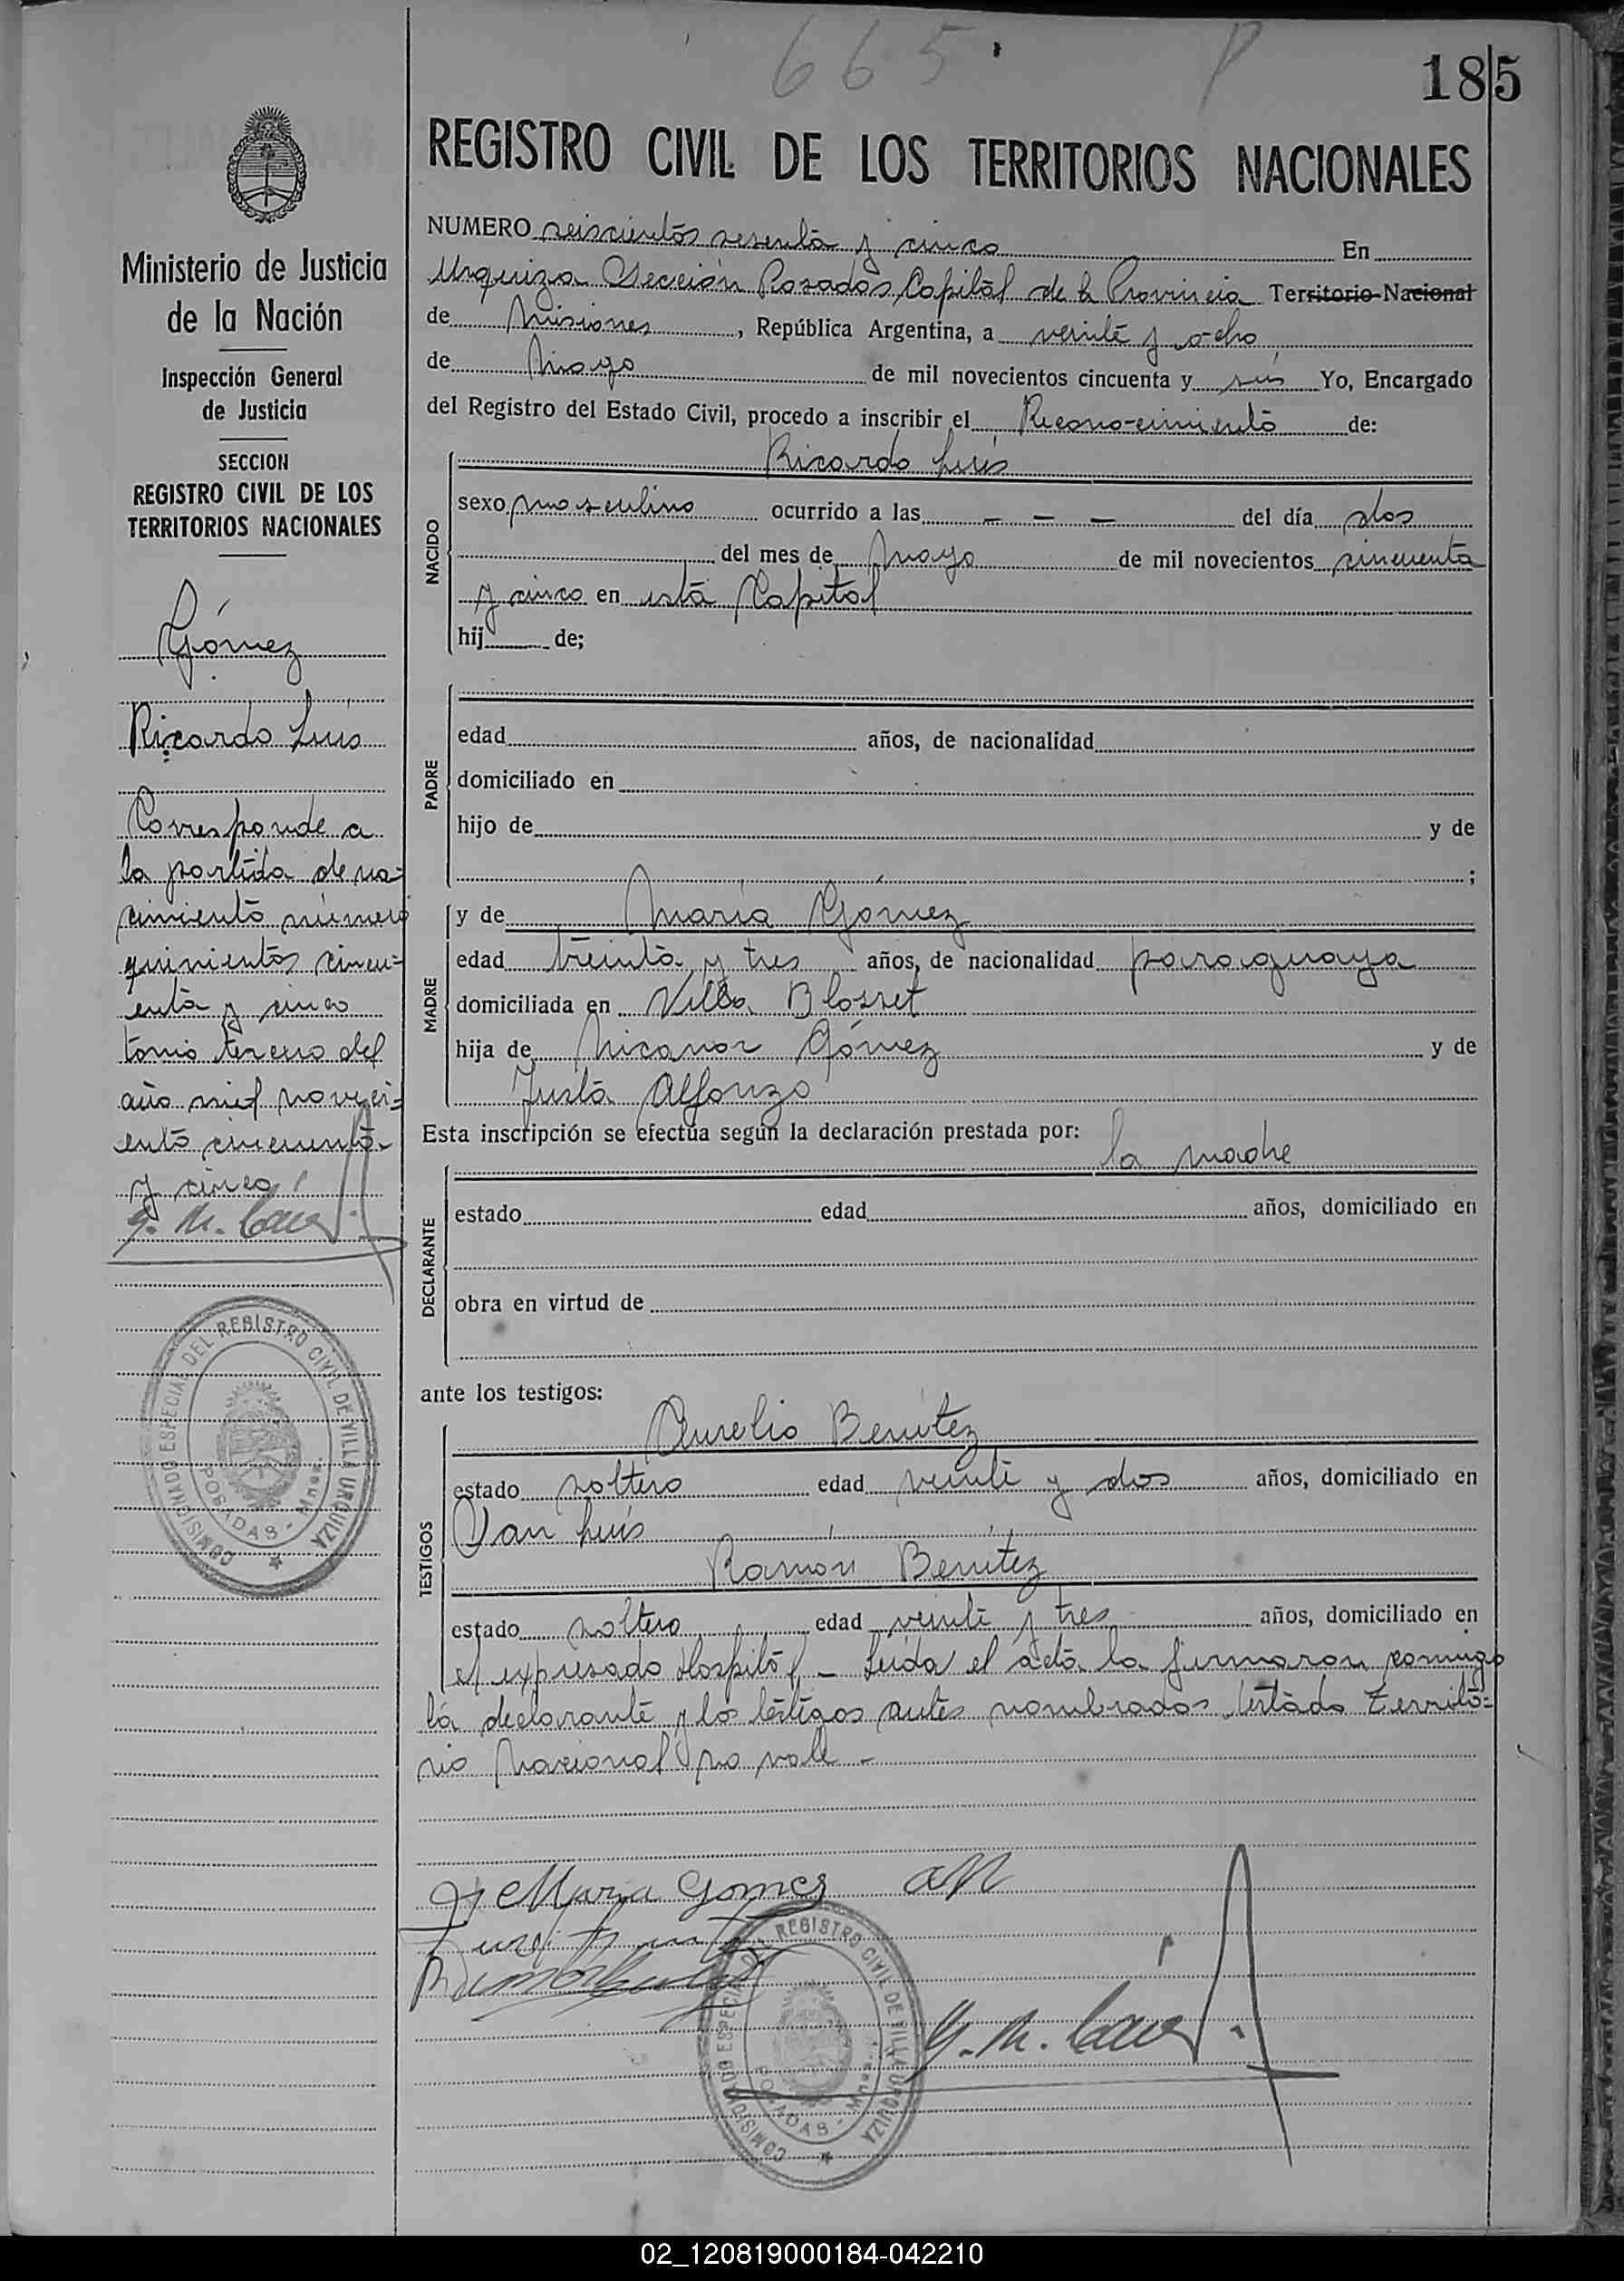 665
P
185
REGISTRO CIVIL DE LOS TERRITORIOS NACIONALES
NUMERO seiscientos sesenta y cinco En
Urquiza Sección Posadas Capital de la Provincia Territorio Nacional
de Misiones, República Argentina, a veinte y ocho
de Mayo de mil novecientos cincuenta y seis Yo, Encargado
del Registro del Estado Civil, procedo a inscribir el Reconocimiento de:
NACIDO
Ricardo Luis
sexo masculino ocurrido a las — — — del día dos
del mes de Mayo de mil novecientos cincuenta
y cinco en esta Capital
hij de;
PADRE
edad años, de nacionalidad
domiciliado en
hijo de y de
;
MADRE
y de María Gómez
edad treinta y tres años, de nacionalidad paraguaya
domiciliada en Villa Blosset
hija de Nicanor Gómez y de
Justa Alfonzo
Esta inscripción se efectúa según la declaración prestada por:
la madre
DECLARANTE
estado edad años, domiciliado en
obra en virtud de
ante los testigos:
TESTIGOS
Aurelio Benítez
estado soltero edad veinte y dos años, domiciliado en
San Luis
Ramón Benítez
estado soltero edad veinte y tres años, domiciliado en
el expresado Hospital — Leída el acta la firmaron conmigo
la declarante y los testigos antes nombrados. Testado Territo=
rio Nacional no vale -
Maria Gomez
COMISIONADO ESPECIAL DEL REGISTRO CIVIL DE VILLA URQUIZA
POSADAS - Mnes.
Ministerio de Justicia
de la Nación
Inspección General
de Justicia
SECCION
REGISTRO CIVIL DE LOS
TERRITORIOS NACIONALES
Gómez
Ricardo Luis
Corresponde a
la partida de na-
cimiento número
quinientos cincu=
enta y cinco
tomo tercero del
año mil noveci=
ento cincuenta
y cinco
COMISIONADO ESPECIAL DEL REGISTRO CIVIL DE VILLA URQUIZA
POSADAS - Mnes.
02_120819000184-042210